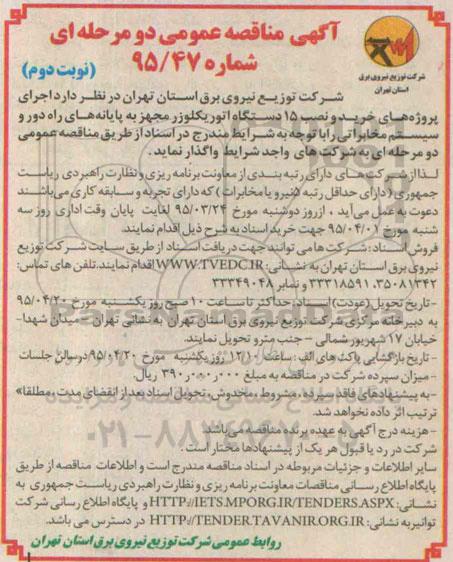 آگهی مناقصه عمومی دو مرحله ای
شماره ۹۵/۴۷
(نوبت دوم)
شرکت توزیع نیروی برق
استان تهران
شرکت توزیع نیروی برق استان تهران در نظر دارد اجرای
پروژه‌های خرید و نصب ۱۵ دستگاه اتوریکلوزر مجهز به پایانه‌های راه دور و
سیستم مخابراتی را با توجه به شرایط مندرج در اسناد از طریق مناقصه عمومی
دو مرحله ای به شرکت های واجد شرایط واگذار نماید.
لذا از شرکت های دارای رتبه بندی از معاونت برنامه ریزی و نظارت راهبردی ریاست
جمهوری (دارای حداقل رتبه ۵ نیرو یا مخابرات) که دارای تجربه و سابقه کاری می‌باشند
دعوت به عمل می‌آید ، از روز دوشنبه مورخ ۹۵/۰۳/۲۴ لغایت پایان وقت اداری روز سه
شنبه مورخ ۹۵/۰۴/۰۱ جهت خرید اسناد به شرح ذیل اقدام نمایند.
فروش اسناد : شرکت ها می توانند جهت دریافت اسناد از طریق سایت شرکت توزیع
نیروی برق استان تهران به نشانی: WWW.TVEDC.IR اقدام نمایند. تلفن های تماس:
۳۵۰۸۱۳۴۲، ۳۳۳۱۸۵۹۱ و نمابر ۳۳۳۴۹۰۴۸
- تاریخ تحویل (عودت) اسناد: حداکثر تا ساعت ۱۰ صبح روز یکشنبه مورخ ۹۵/۰۴/۲۰
به دبیرخانه مرکزی شرکت توزیع نیروی برق استان تهران به نشانی تهران - میدان شهدا-
خیابان ۱۷ شهریور شمالی - جنب مترو تحویل نمایند.
- تاریخ بازگشایی پاکت های الف : ساعت ۱۲/۱۰ روز یکشنبه مورخ ۹۵/۰۴/۲۰ در سالن جلسات
- میزان سپرده شرکت در مناقصه به مبلغ ۳۹۰٫۰۰۰٫۰۰۰ ریال.
- به پیشنهادهای فاقد سپرده، مشروط، مخدوش، تحویل اسناد بعد از انقضای مدت ، مطلقا»
ترتیب اثر داده نخواهد شد.
- هزینه درج آگهی به عهده برنده مناقصه می‌باشد.
شرکت در رد یا قبول هر یک از پیشنهادها مختار است .
سایر اطلاعات و جزئیات مربوطه در اسناد مناقصه مندرج است و اطلاعات مناقصه از طریق
پایگاه اطلاع رسانی مناقصات معاونت برنامه ریزی و نظارت راهبردی ریاست جمهوری به
نشانی: HTTP://IETS.MPORG.IR/TENDERS.ASPX و پایگاه اطلاع رسانی شرکت
توانیر به نشانی: HTTP://TENDER.TAVANIR.ORG.IR در دسترس می باشد.
روابط عمومی شرکت توزیع نیروی برق استان تهران